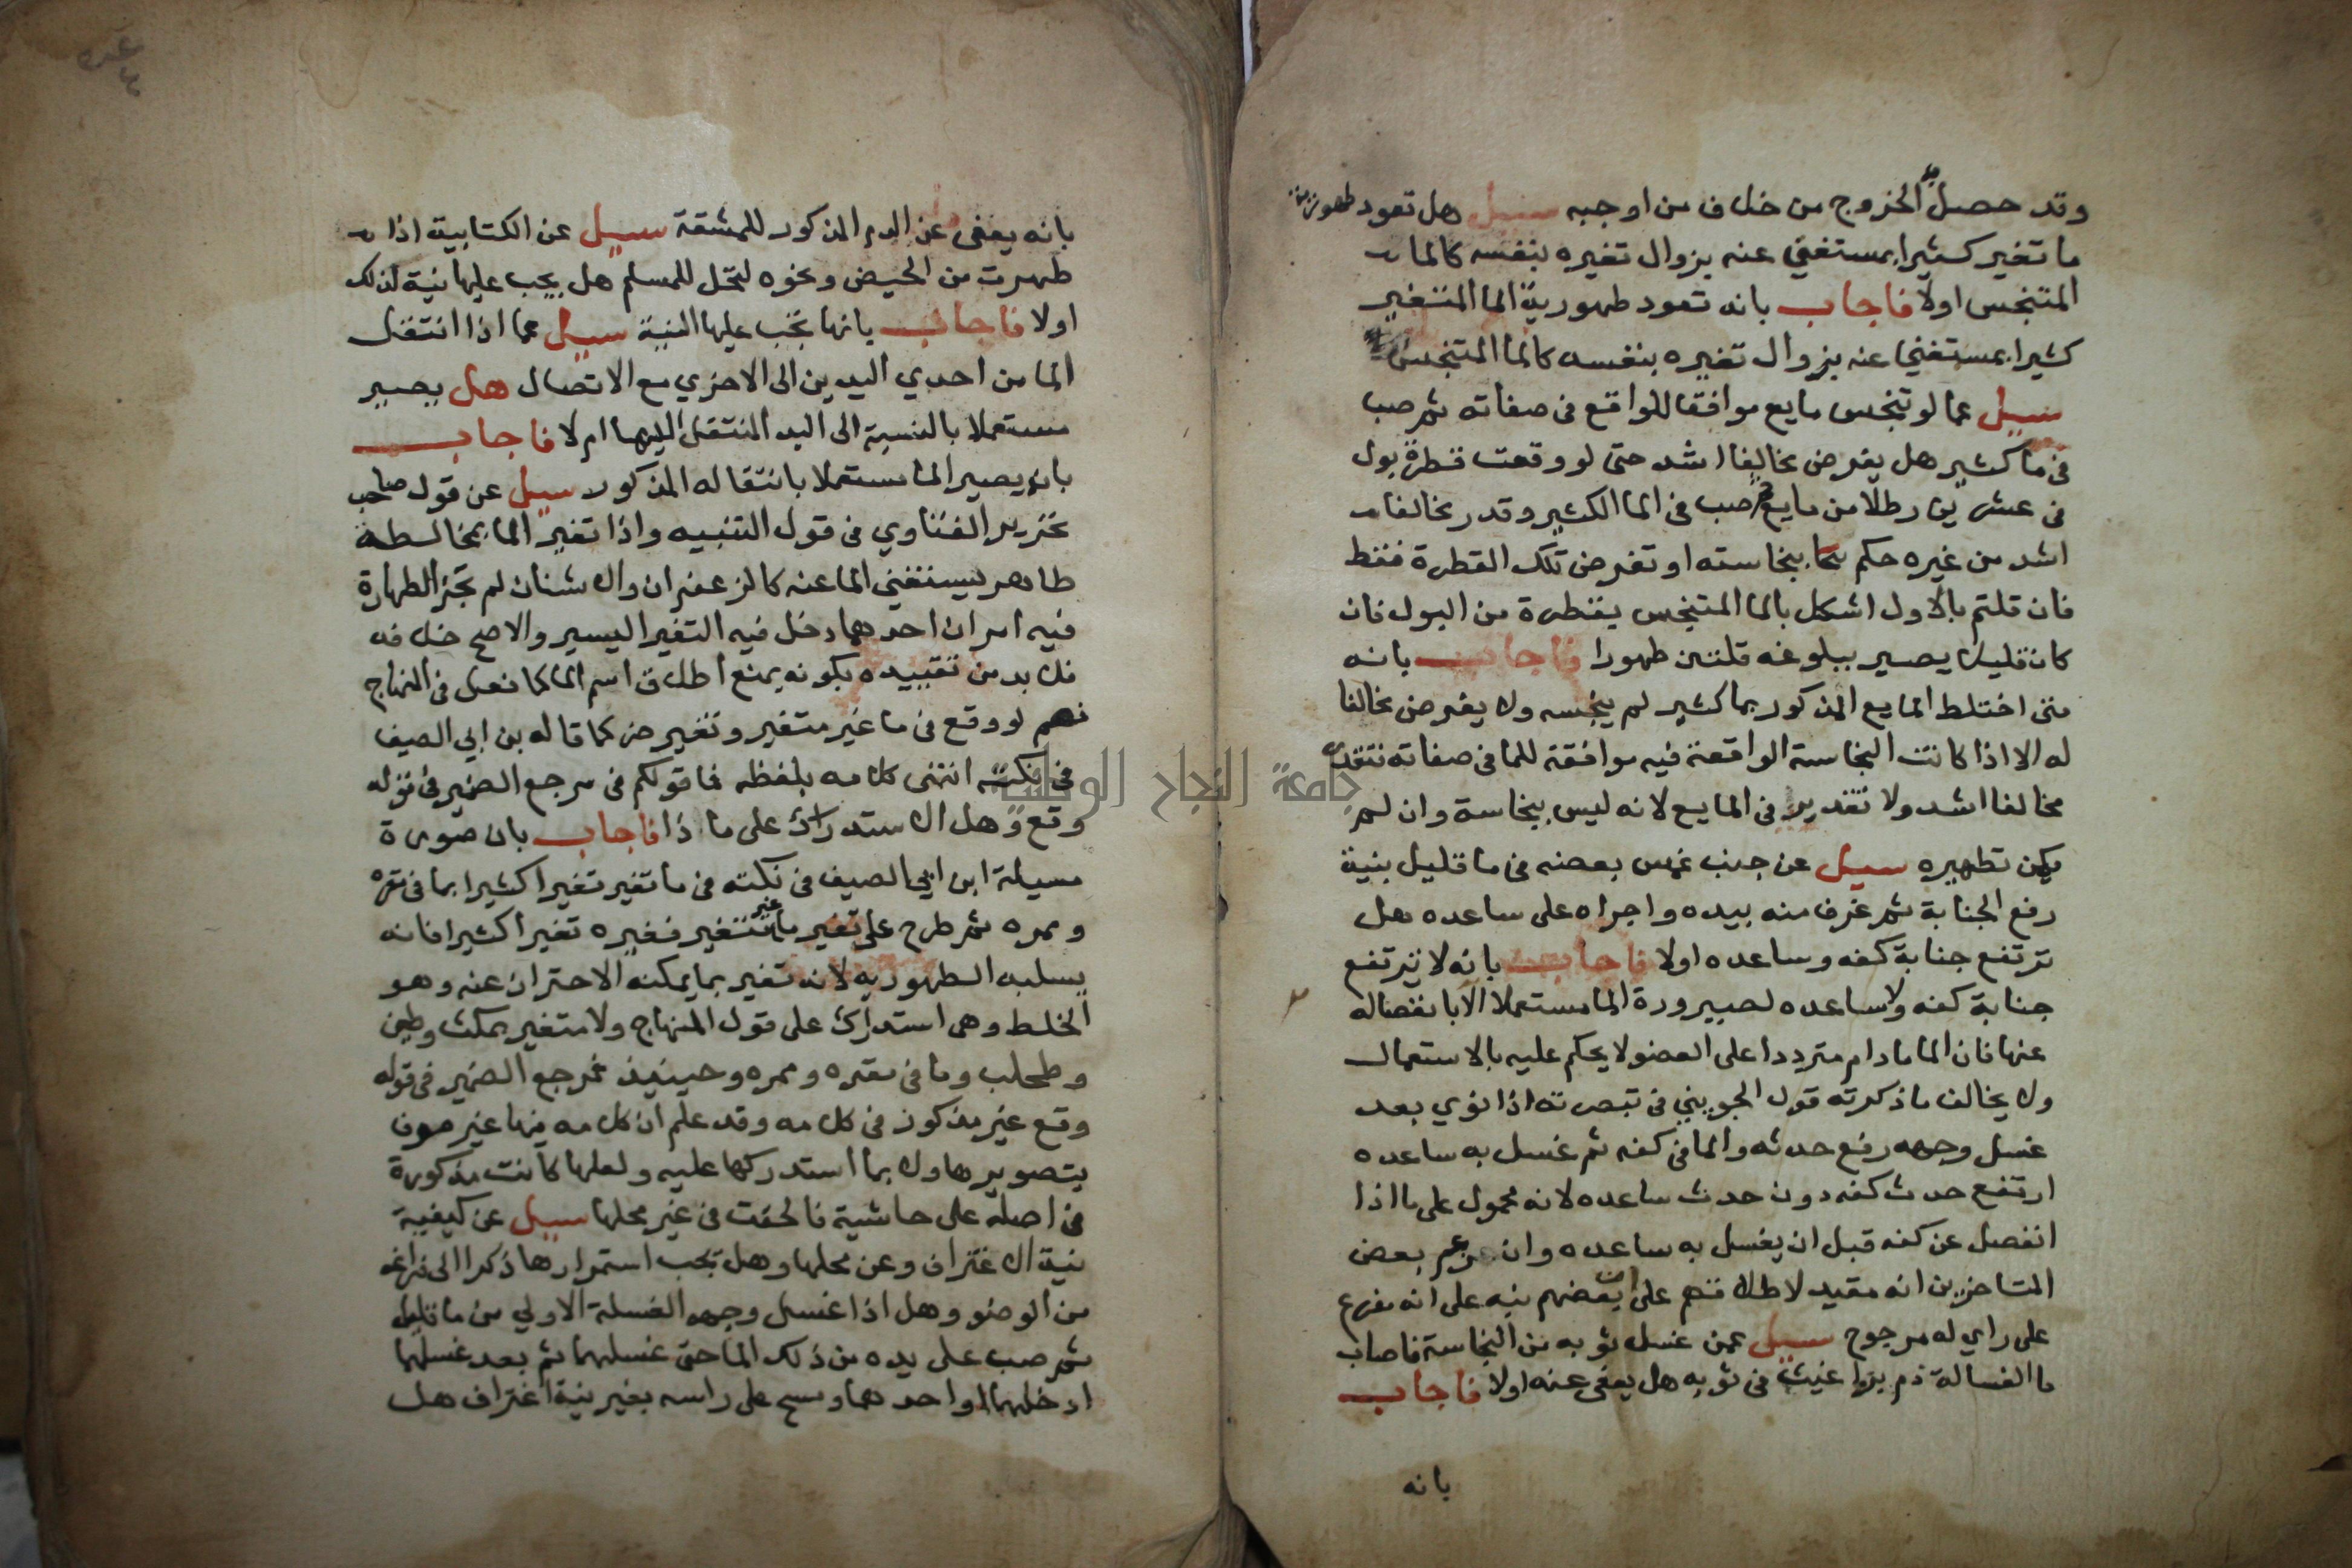 وقد حصل به الخروج من خلاف من اوجبه سيل هل تعود طهورية
ما تغير كثيرا بمستغني عنه بزوال تغيره بنفسه كالما
المتنجس اولا فاجاب بانه تعود طهورية الما المتغير
كثيرا بمستغني عنه بزوال تغيره بنفسه كالما المتنجس
سيل عما لو تنجس مايع موافقا للواقع في صفاته ثم صب
في ما كثير هل يفرض مخالفا اشد حتى لو وقعت قطرة بول
في عشرين رطلا من مايع ثم صب في الما الكثير وقدر مخالفا
اشد من غيره حكم بنجاسته او تفرض تلك القطرة فقط
فان قلتم بالاول اشكل بالما المتنجس بقطرة من البول فان
كان قليلا يصير ببلوغه قلتين طهورا فاجاب بانه
متى اختلط المايع المذكور بما كثير لم ينجسه ولا يفرض مخالفا
له الا اذا كانت النجاسة الواقعة فيه موافقة للما في صفاته فتقدر
مخالفا اشد ولا تقدير في المايع لانه ليس بنجاسة وان لم
يمكن تطهيره سيل عن جنب غمس بعضه في ما قليل بنية
رفع الجنابة ثم غرف منه بيده واجراه على ساعده هل
ترتفع جنابة كفه وساعده اولا فاجاب بانه لا ترتفع
جنابة كفه ولا ساعده لصيرورة الما مستعملا الا بانفصاله
عنها فان الما مادام مترددا على العضو لا يحكم عليه بالاستعمال
ولا يخالف ما ذكرته قول الجويني في تبصرته اذا نوي بعد
غسل وجهه رفع حدثه والما في كفه ثم غسل به ساعده
ارتفع حدث كفه دون حدث ساعده لانه محمول على ما اذا
انفصل عن كفه قبل ان يغسل به ساعده وان زعم بعض
المتاخرين انه مقيد لاطلاقهم على ان بعضهم نبه على انه مفرع
على راي له مرجوح سيل عمن غسل ثوبه من النجاسة فاصاب
ما الغسالة دم براغيث في ثوبه هل يعفى عنه اولا فاجاب
بانه
بانه يعفى عن الدم المذكور للمشقة سيل عن الكتابية اذا
طهرت من الحيض ونحوه لتحل للمسلم هل يجب عليها نية لذلك
اولا فاجاب بانها تجب عليها النية سيل عما اذا انتقل
الما من احدي اليدين الى الاخري مع الاتصال هل يصير
مستعملا بالنسبة الى اليد المنتقل اليها ام لا فاجاب
بانه يصير الما مستعملا بانتقاله المذكور سيل عن قول صاحب
تحرير الفتاوي في قول التنبيه واذا تغير الما بمخالطة
طاهر يستغني الما عنه كالزعفران والاشنان لم تجز الطهارة
فيه امران احدهما دخل فيه التغير اليسير والاصح خلافه
فلا بد من تقييده بكونه يمنع اطلاق اسم الما كما فعل في المنهاج
نعم لو وقع في ما غير متغير وتغير ضر كما قاله بن ابي الصيف
في نكته انتهى كلامه بلفظه فما قولكم في مرجع الضمير في قوله
وقع وهل الاستدراك على ماذا فاجاب بان صورة
مسيلة ابن ابي الصيف في نكته في ما تغير تغيرا كثيرا بما في مقره
وممره ثم طرح على غير متغير فغيره تغيرا كثيرا فانه
يسلبه الطهورية لانه تغير بما يمكنه الاحتراز عنه وهو
الخلط وهي استدراك على قول المنهاج ولا متغير بمكث وطين
وطحلب وما في مقره وممره وحينيذ فمرجع الضمير في قوله
وقع غير مذكور في كلامه وقد علم ان كلامه فيها غير موف
بتصويرها ولا بما استدركها عليه ولعلها كانت مذكورة
في اصله على حاشية فالحقت في غير محلها سيل عن كيفية
نية الاغتراف وعن محلها وهل يجب استمرارها ذكرا الى فراغه
من الوضو وهل اذا غسل وجهه الغسلة الاولي من ما قليل
ثم صب على يده من ذلك الما حتى غسلهما ثم بعد غسلهما
ادخلهما او احدهما ومسح على راسه بغير نية اغتراف هل
جامعة النجاح الوطنية